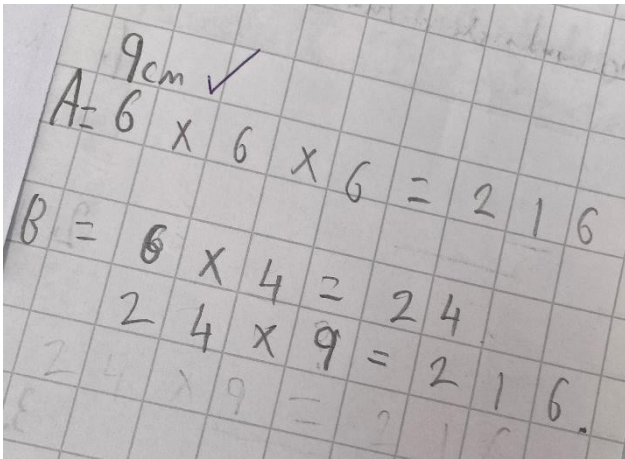 9cm ✓
A= 6 × 6 × 6 = 216
B = 6 × 4 = 24
24 × 9 = 216.